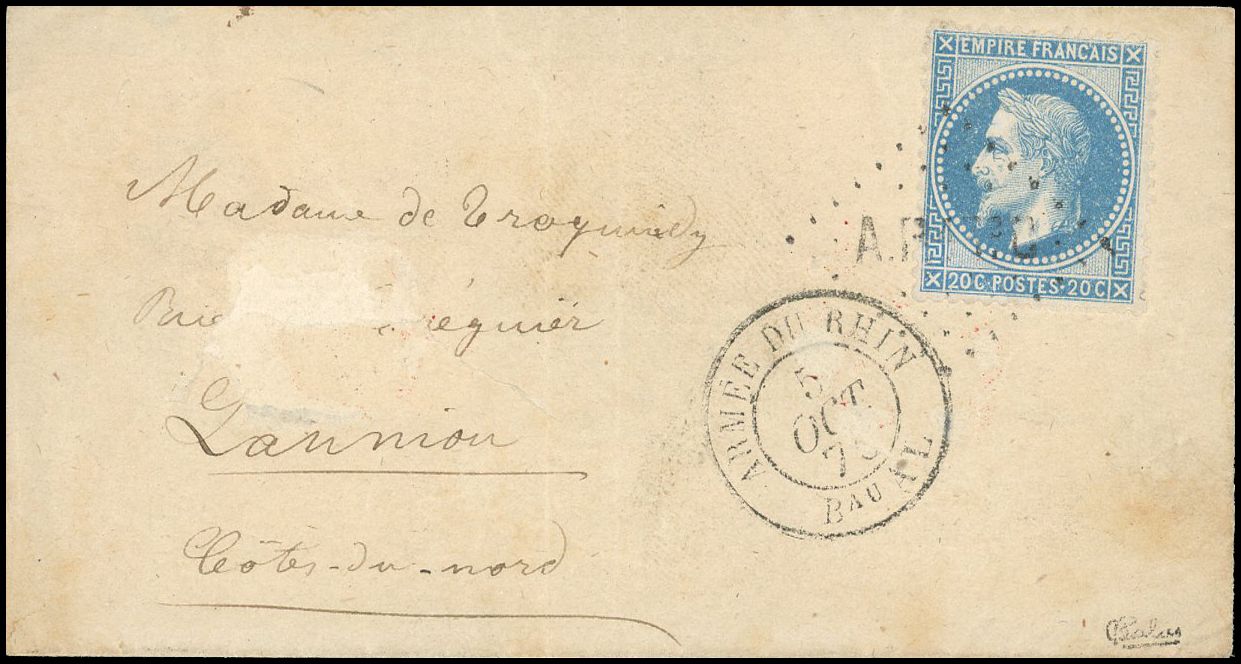 EMPIRE FRANCAIS
20 C · POSTES · 20 C
Madame de Troquindy
Rue réguier
Lannion
Côtes-du-nord
ARMÉE DU RHIN
5
OCT
70
BAU AL